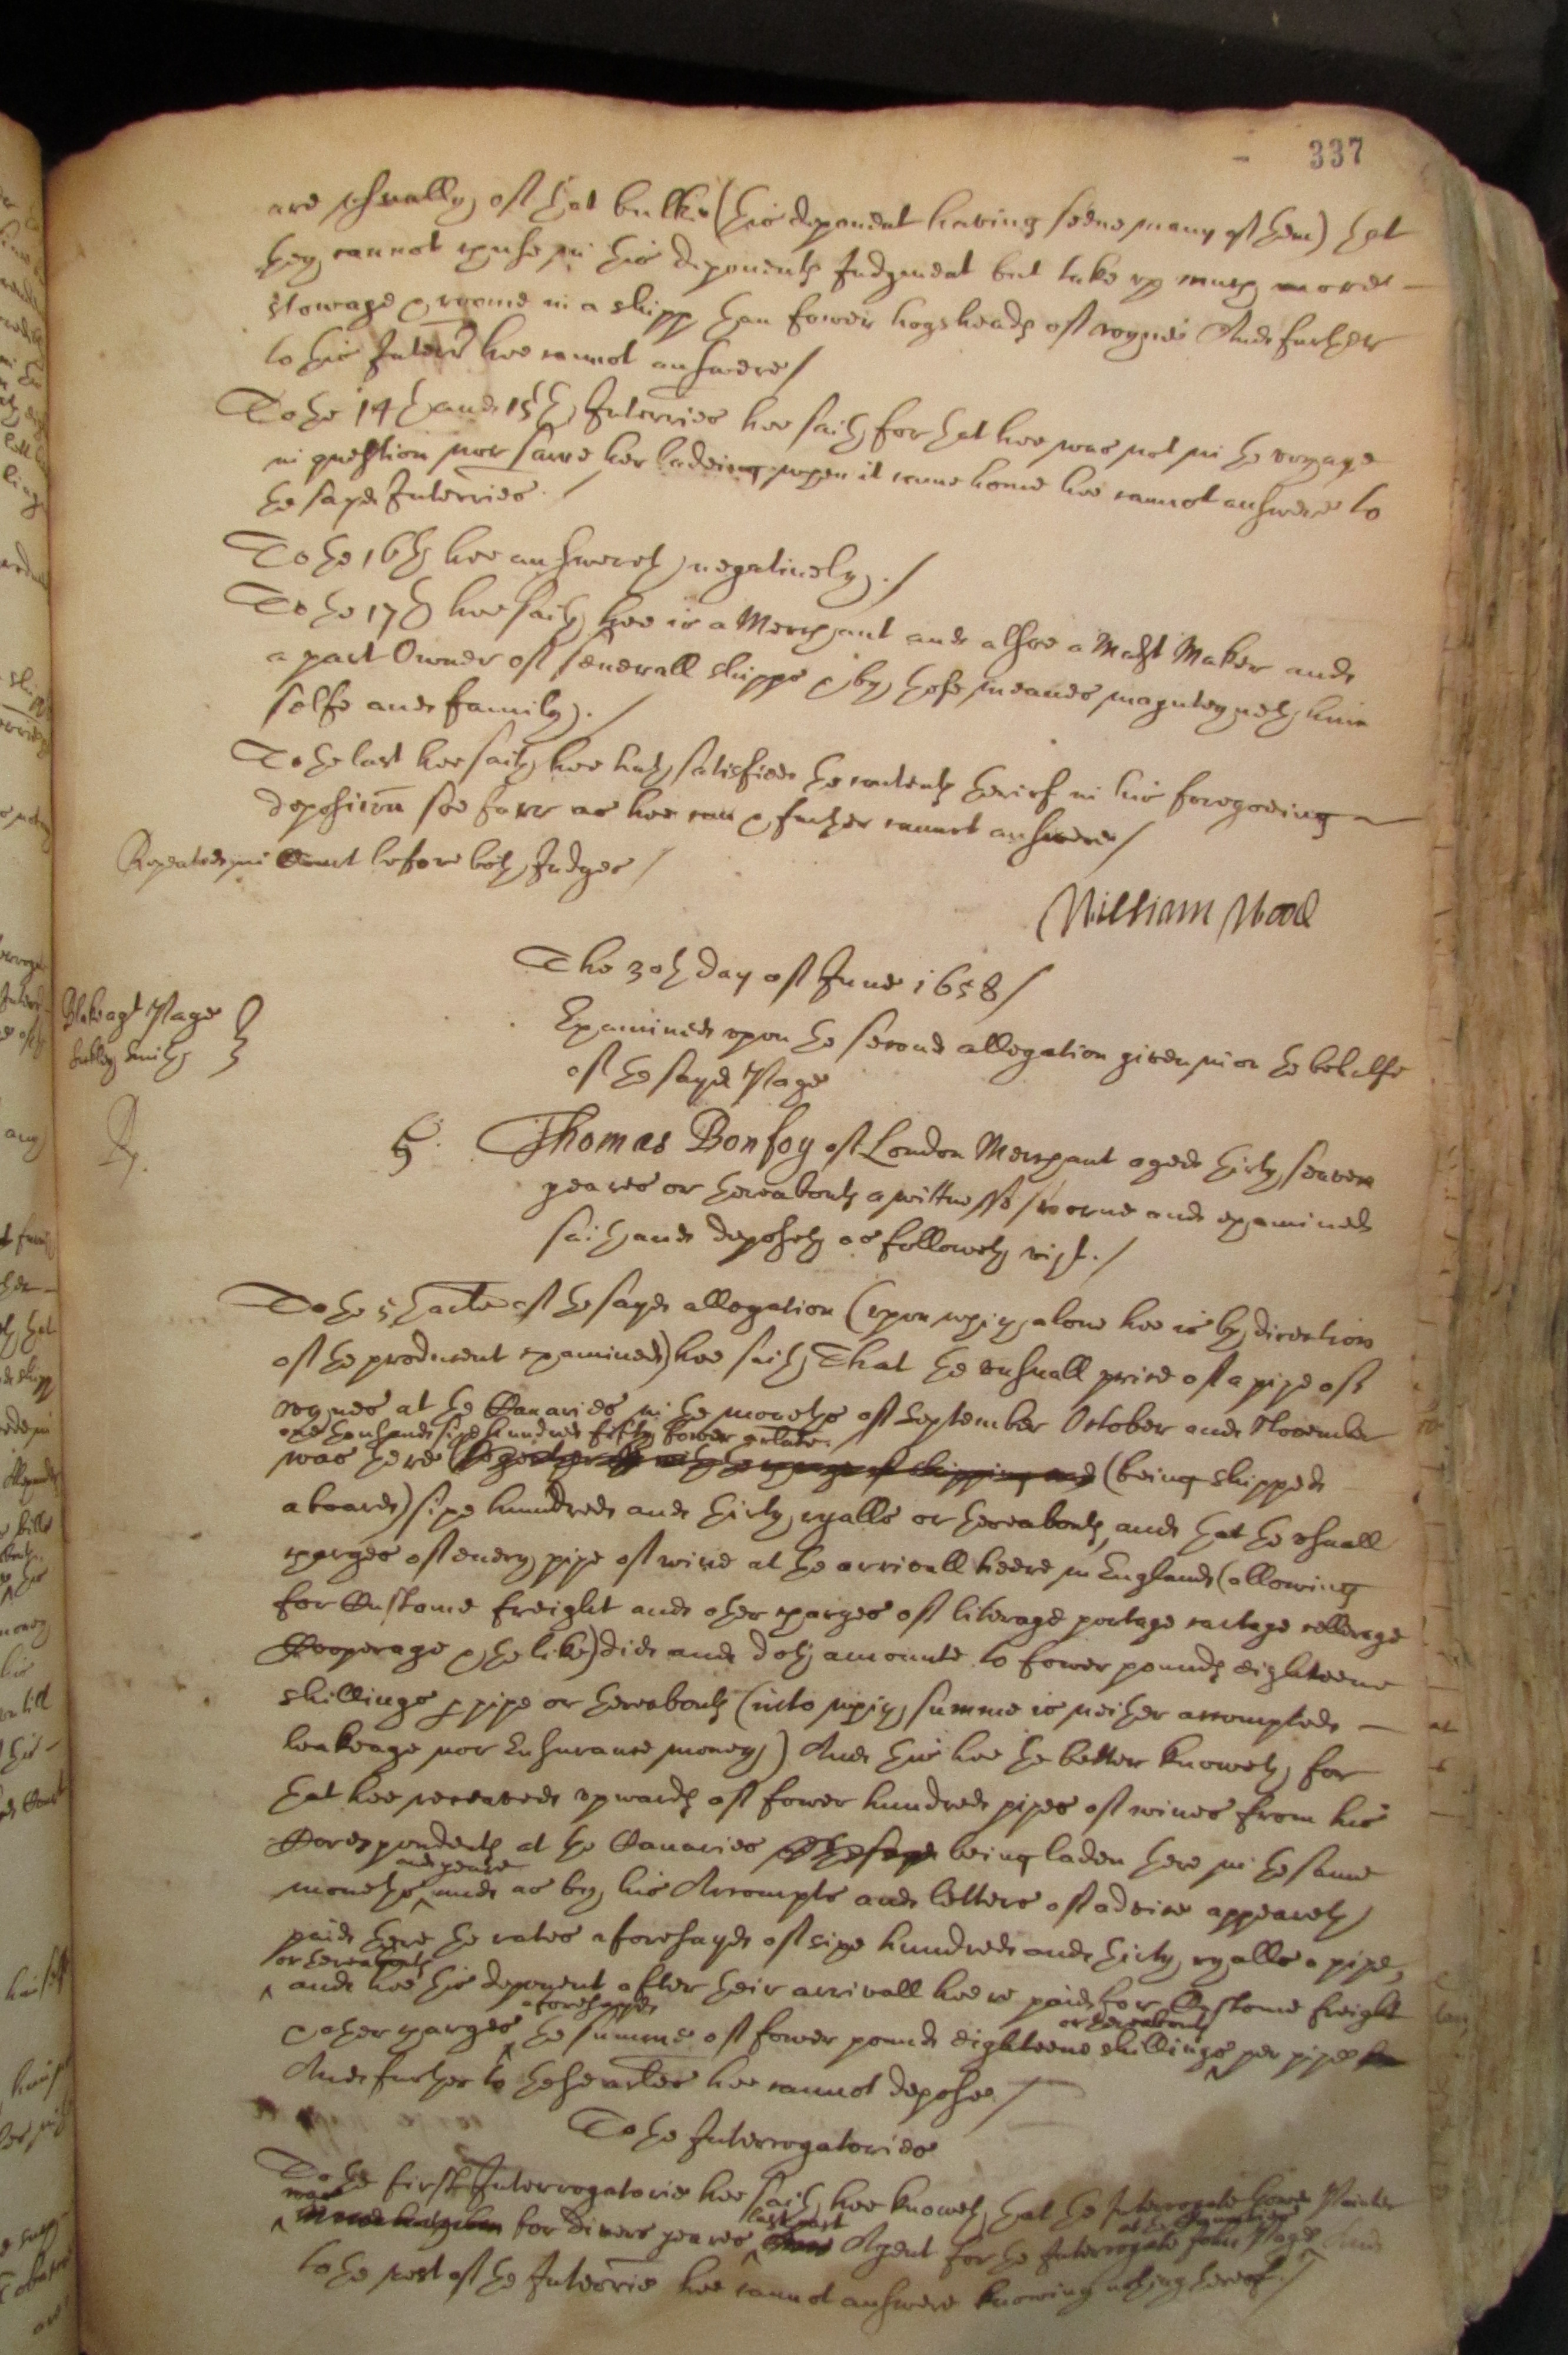 337
are usually of that bulke (this deponent having seene many of them) that
they cannot chuse in this deponents Judgment but take up much more
stowage & roome in a shipp than fower hogsheads of wynes And further
to this Interrie hee cannot answere /
To the 14th and 15th Interries hee saith for that hee was not in the voyage
in question nor sawe her ladeing when it came home hee cannot answere to
the sayd Interries. /
To the 16th hee answereth negatively. /
To the 17th hee saith hee is a Merchant and alsoe a Mast Maker and
a part Owner of severall shipps & by those meanes maynteyneth him
selfe and family. /
To the last hee saith hee hath satisfied the contents thereof in his foregoeing
deposition soe farr as hee can & further cannot answere /
Repeated in Court before both Judges /
William Wood
The 30th day of June 1658 /
Blake agt Page
Smith
Examined upon the second allegation given in on the behalfe
of the sayd Page
Rp.
5.
Thomas Bonfoy of London Merchant aged thirty seaven
yeares or thereabouts a wittnesse sworne and examined
saith and deposeth as followeth vizt. /
To the 5th arte of the sayd allegation (upon which alone hee is by direction
of the producent examined) hee saith That the usuall price of a pipe of
wynes at the Canaries in the moneths of September October and November
one thousand sixe hundred fifty fower arlate
was there (together with the charge of shipping and (being shipped
aboard) sixe hundred and thirty ryalls or thereabouts, and that the usuall
charges of every pipe of wine at the arrivall heere in England (allowing
for Custome freight and other charges of literage portage cartage cellerage
Cooperage & the like) did and doth amounte to fower pounds eighteene
shillings p pipe or thereabouts (into which summe is neither accompted
leakeage nor Ensurance money) And this hee the better knoweth for
that hee receaved upwards of fower hundred pipes of wines from his
Correspondents at the Canaries of the sayd being laden there in the same
and yeare
moneths and as by his Accompts and letters of advice appeareth
paid there the rates aforesayd of sixe hundred and thirty ryalls a pipe,
or thereabouts
and hee this deponent after their arrivall heere paid for Custome freight
aforesayd or thereabouts
& other charges the summe of fower pounds eighteene shillings per pipe
And further to these artes hee cannot depose /
To the Interrogatories
To the first Interrogatorie hee saith hee knoweth that the Interrogate Painter
was last past at the Canaries
for divers yeares Agent for the Interrogate John Page And
to the rest of the Interrie hee cannot answere knowing nothing thereof. /